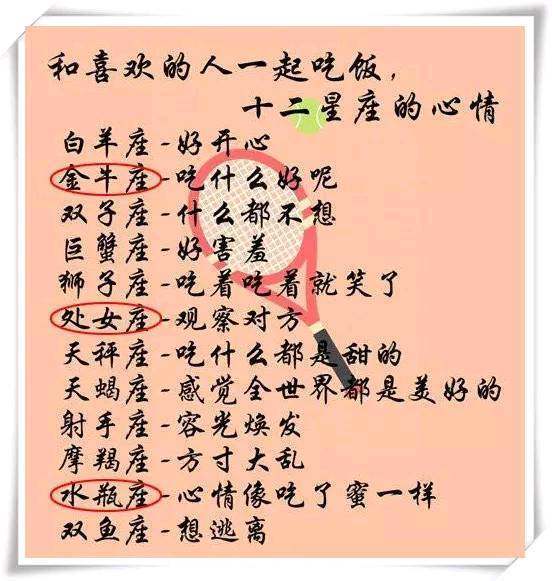 和喜欢的人一起吃饭,
十二星座的心情
白羊座-好开心
金牛座-吃什么好呢
双子座-什么都不想
巨蟹座-好害羞
狮子座-吃着吃着就笑了
处女座-观察对方
天秤座-吃什么都是甜的
天蝎座-感觉全世界都是美好的
射手座-容光焕发
摩羯座-方寸大乱
水瓶座-心情像吃了蜜一样
双鱼座-想逃离